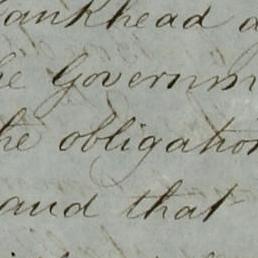 ankhead a
he Governm
he obligation
and that